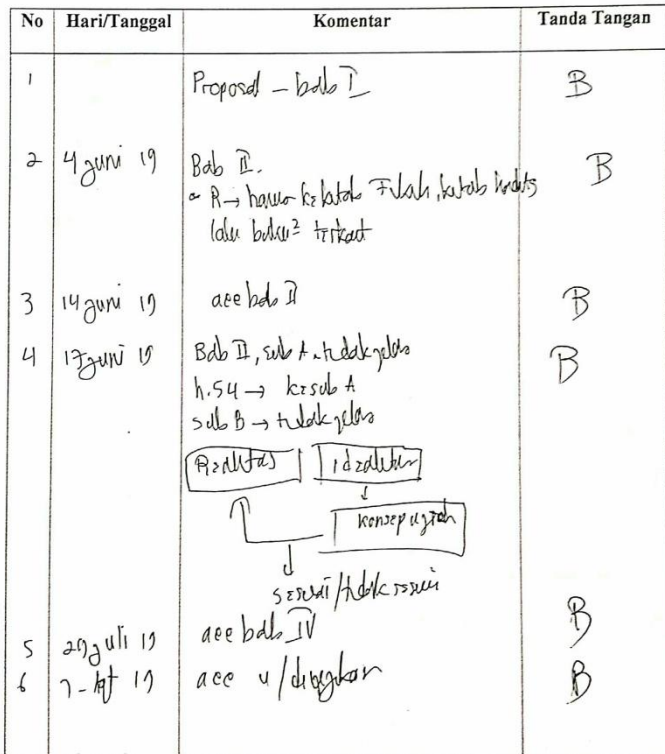 No Hari/Tanggal Komentar Tanda Tangan
1 Proposal – bab I B
2 4 juni 19 Bab II. B
R → harus ke kitab Fikih, kitab hadits
lalu buku² terkait
3 14 juni 19 acc bab II B
4 17 juni 19 Bab II, sub A tidak jelas B
h.54 → ke sub A
sub B → tidak jelas
Realitas Idealitas
Konsep
sesuai/tidak sesuai
5 29 juli 19 acc bab IV B
6 19 acc u/ diujikan B